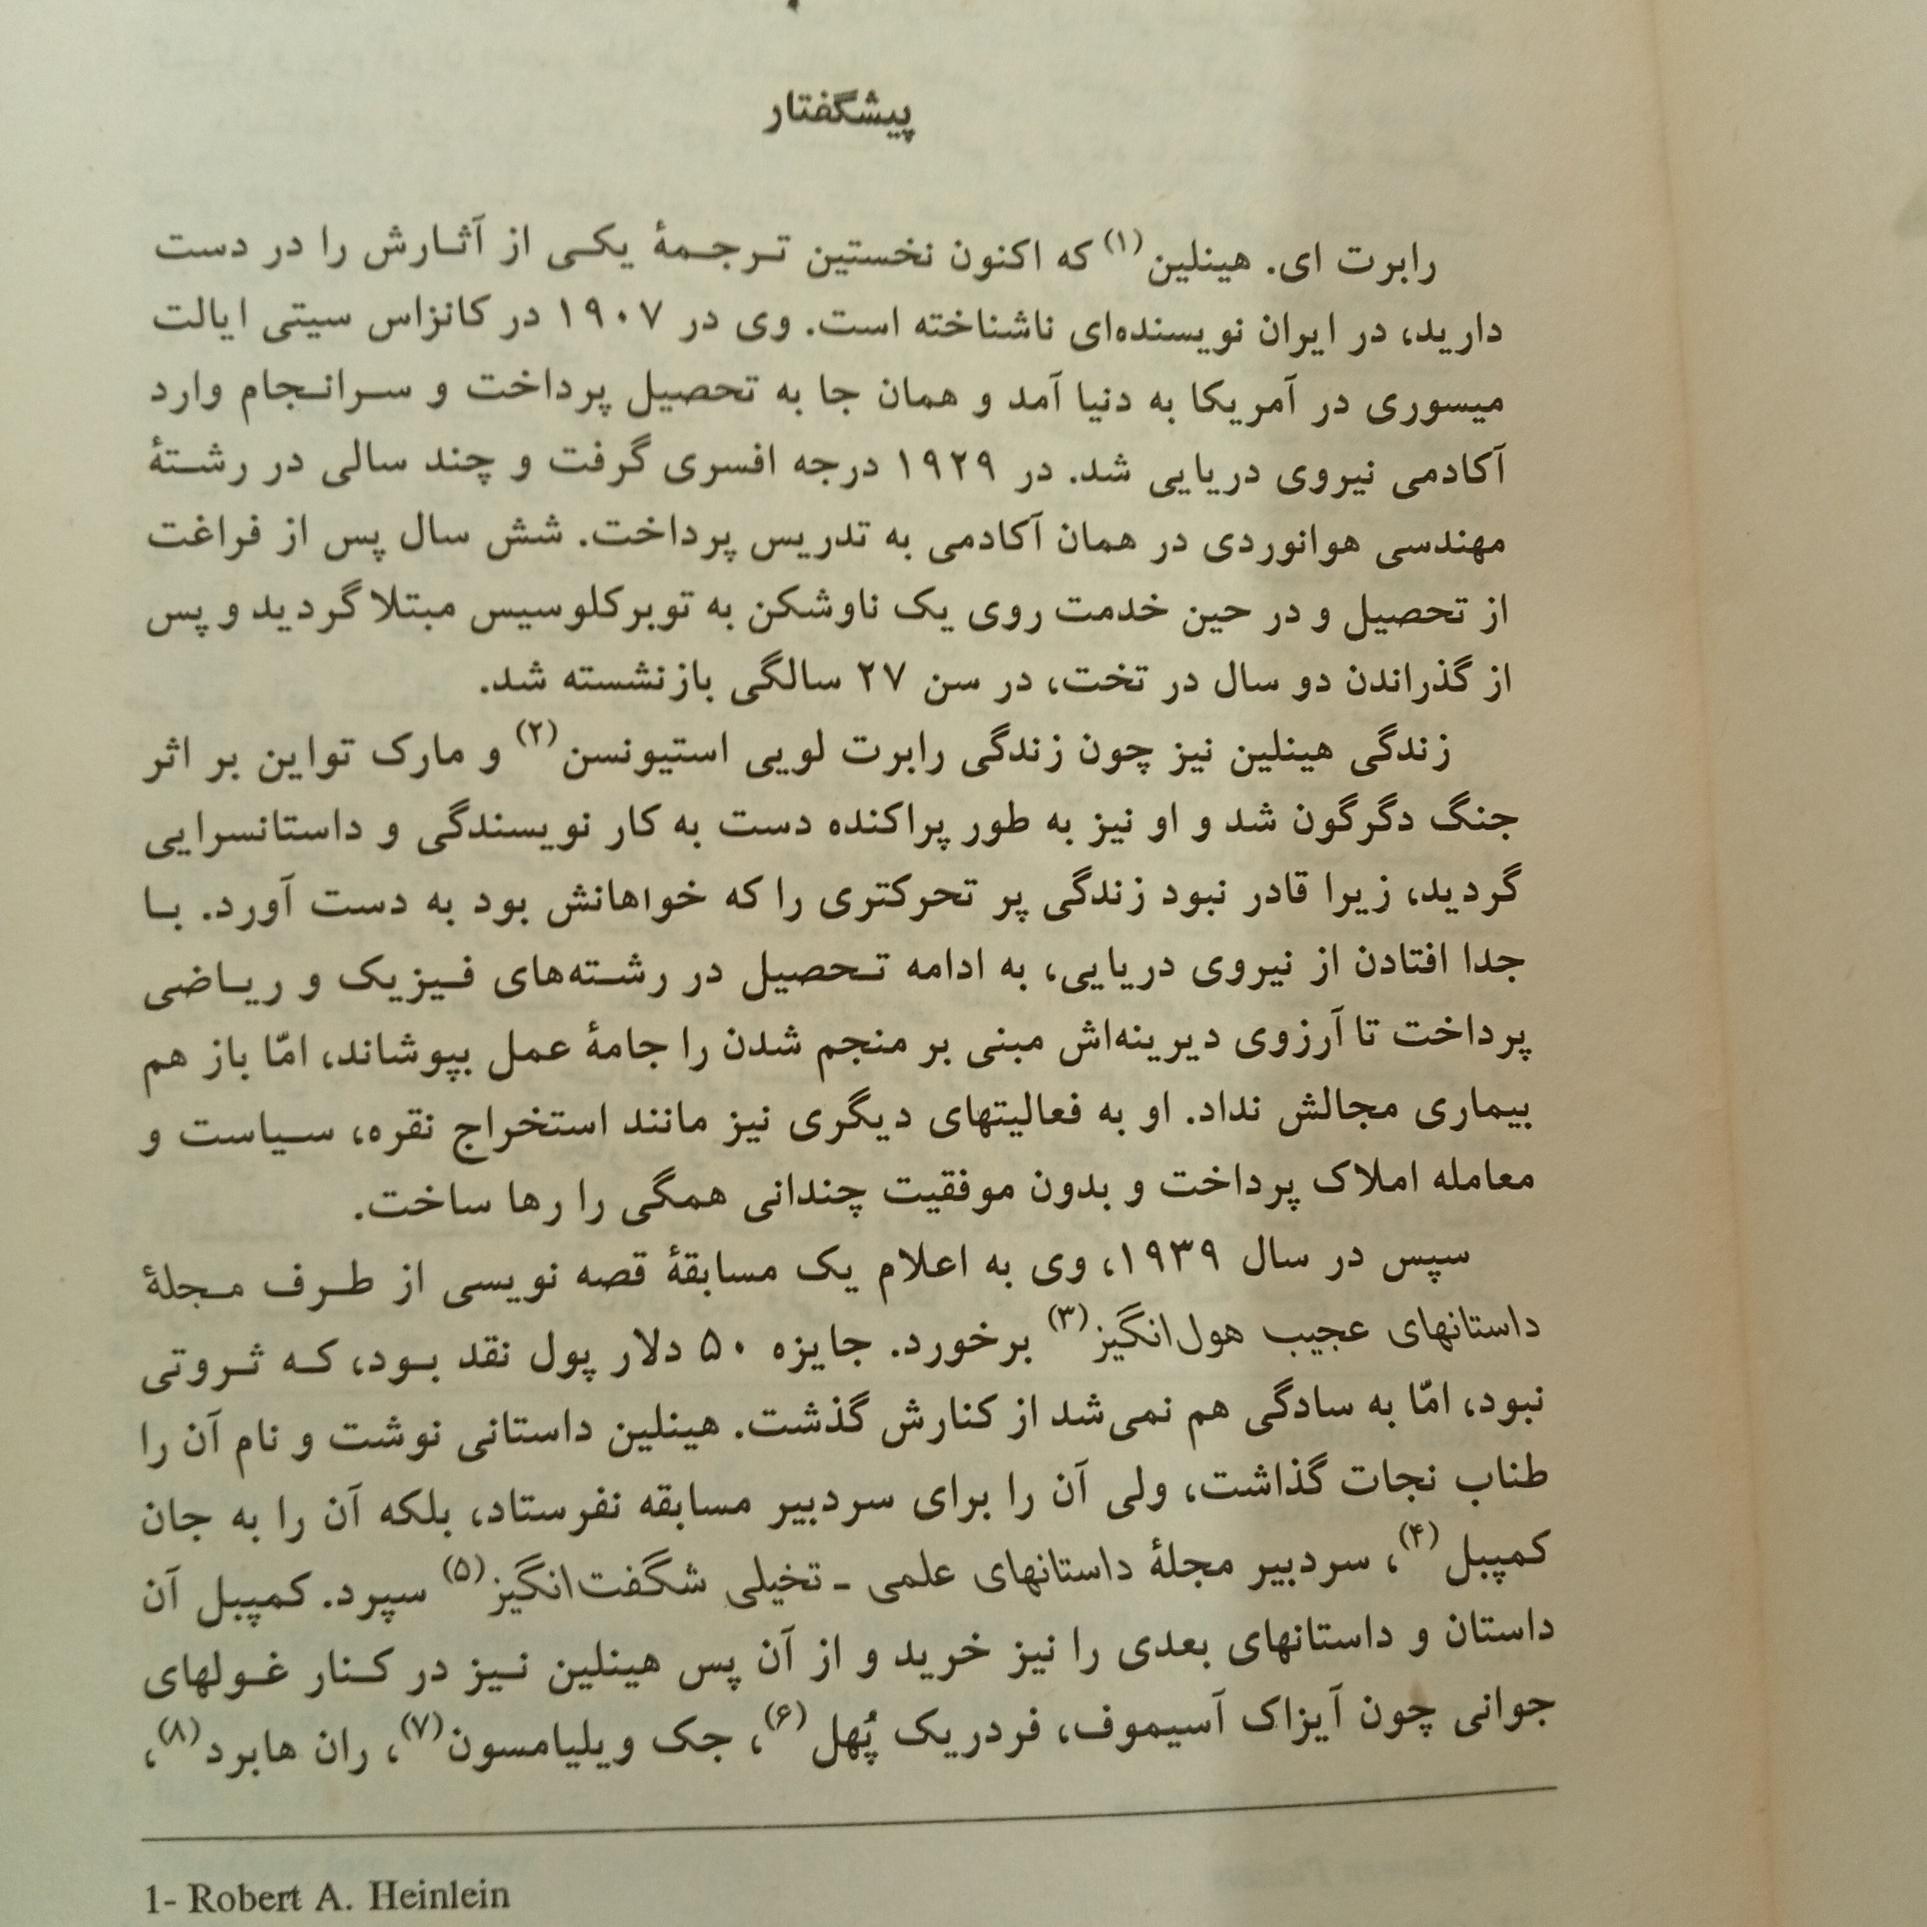 پیشگفتار
رابرت ای. هینلین(۱) که اکنون نخستین ترجمهٔ یکی از آثارش را در دست
دارید، در ایران نویسنده‌ای ناشناخته است. وی در ۱۹۰۷ در کانزاس سیتی ایالت
میسوری در آمریکا به دنیا آمد و همان جا به تحصیل پرداخت و سرانجام وارد
آکادمی نیروی دریایی شد. در ۱۹۲۹ درجه افسری گرفت و چند سالی در رشتهٔ
مهندسی هوانوردی در همان آکادمی به تدریس پرداخت. شش سال پس از فراغت
از تحصیل و در حین خدمت روی یک ناوشکن به توبرکلوسیس مبتلا گردید و پس
از گذراندن دو سال در تخت، در سن ۲۷ سالگی بازنشسته شد.
زندگی هینلین نیز چون زندگی رابرت لویی استیونسن(۲) و مارک تواین بر اثر
جنگ دگرگون شد و او نیز به طور پراکنده دست به کار نویسندگی و داستانسرایی
گردید، زیرا قادر نبود زندگی پر تحرکتری را که خواهانش بود به دست آورد. با
جدا افتادن از نیروی دریایی، به ادامه تحصیل در رشته‌های فیزیک و ریاضی
پرداخت تا آرزوی دیرینه‌اش مبنی بر منجم شدن را جامهٔ عمل بپوشاند، امّا باز هم
بیماری مجالش نداد. او به فعالیتهای دیگری نیز مانند استخراج نقره، سیاست و
معامله املاک پرداخت و بدون موفقیت چندانی همگی را رها ساخت.
سپس در سال ۱۹۳۹، وی به اعلام یک مسابقهٔ قصه نویسی از طرف مجلهٔ
داستانهای عجیب هول‌انگیز(۳) برخورد. جایزه ۵۰ دلار پول نقد بود، که ثروتی
نبود، امّا به سادگی هم نمی‌شد از کنارش گذشت. هینلین داستانی نوشت و نام آن را
طناب نجات گذاشت، ولی آن را برای سردبیر مسابقه نفرستاد، بلکه آن را به جان
کمپبل(۴)، سردبیر مجلهٔ داستانهای علمی ـ تخیلی شگفت‌انگیز(۵) سپرد. کمپبل آن
داستان و داستانهای بعدی را نیز خرید و از آن پس هینلین نیز در کنار غولهای
جوانی چون آیزاک آسیموف، فردریک پُهل(۶)، جک ویلیامسون(۷)، ران هابرد(۸)،
1- Robert A. Heinlein